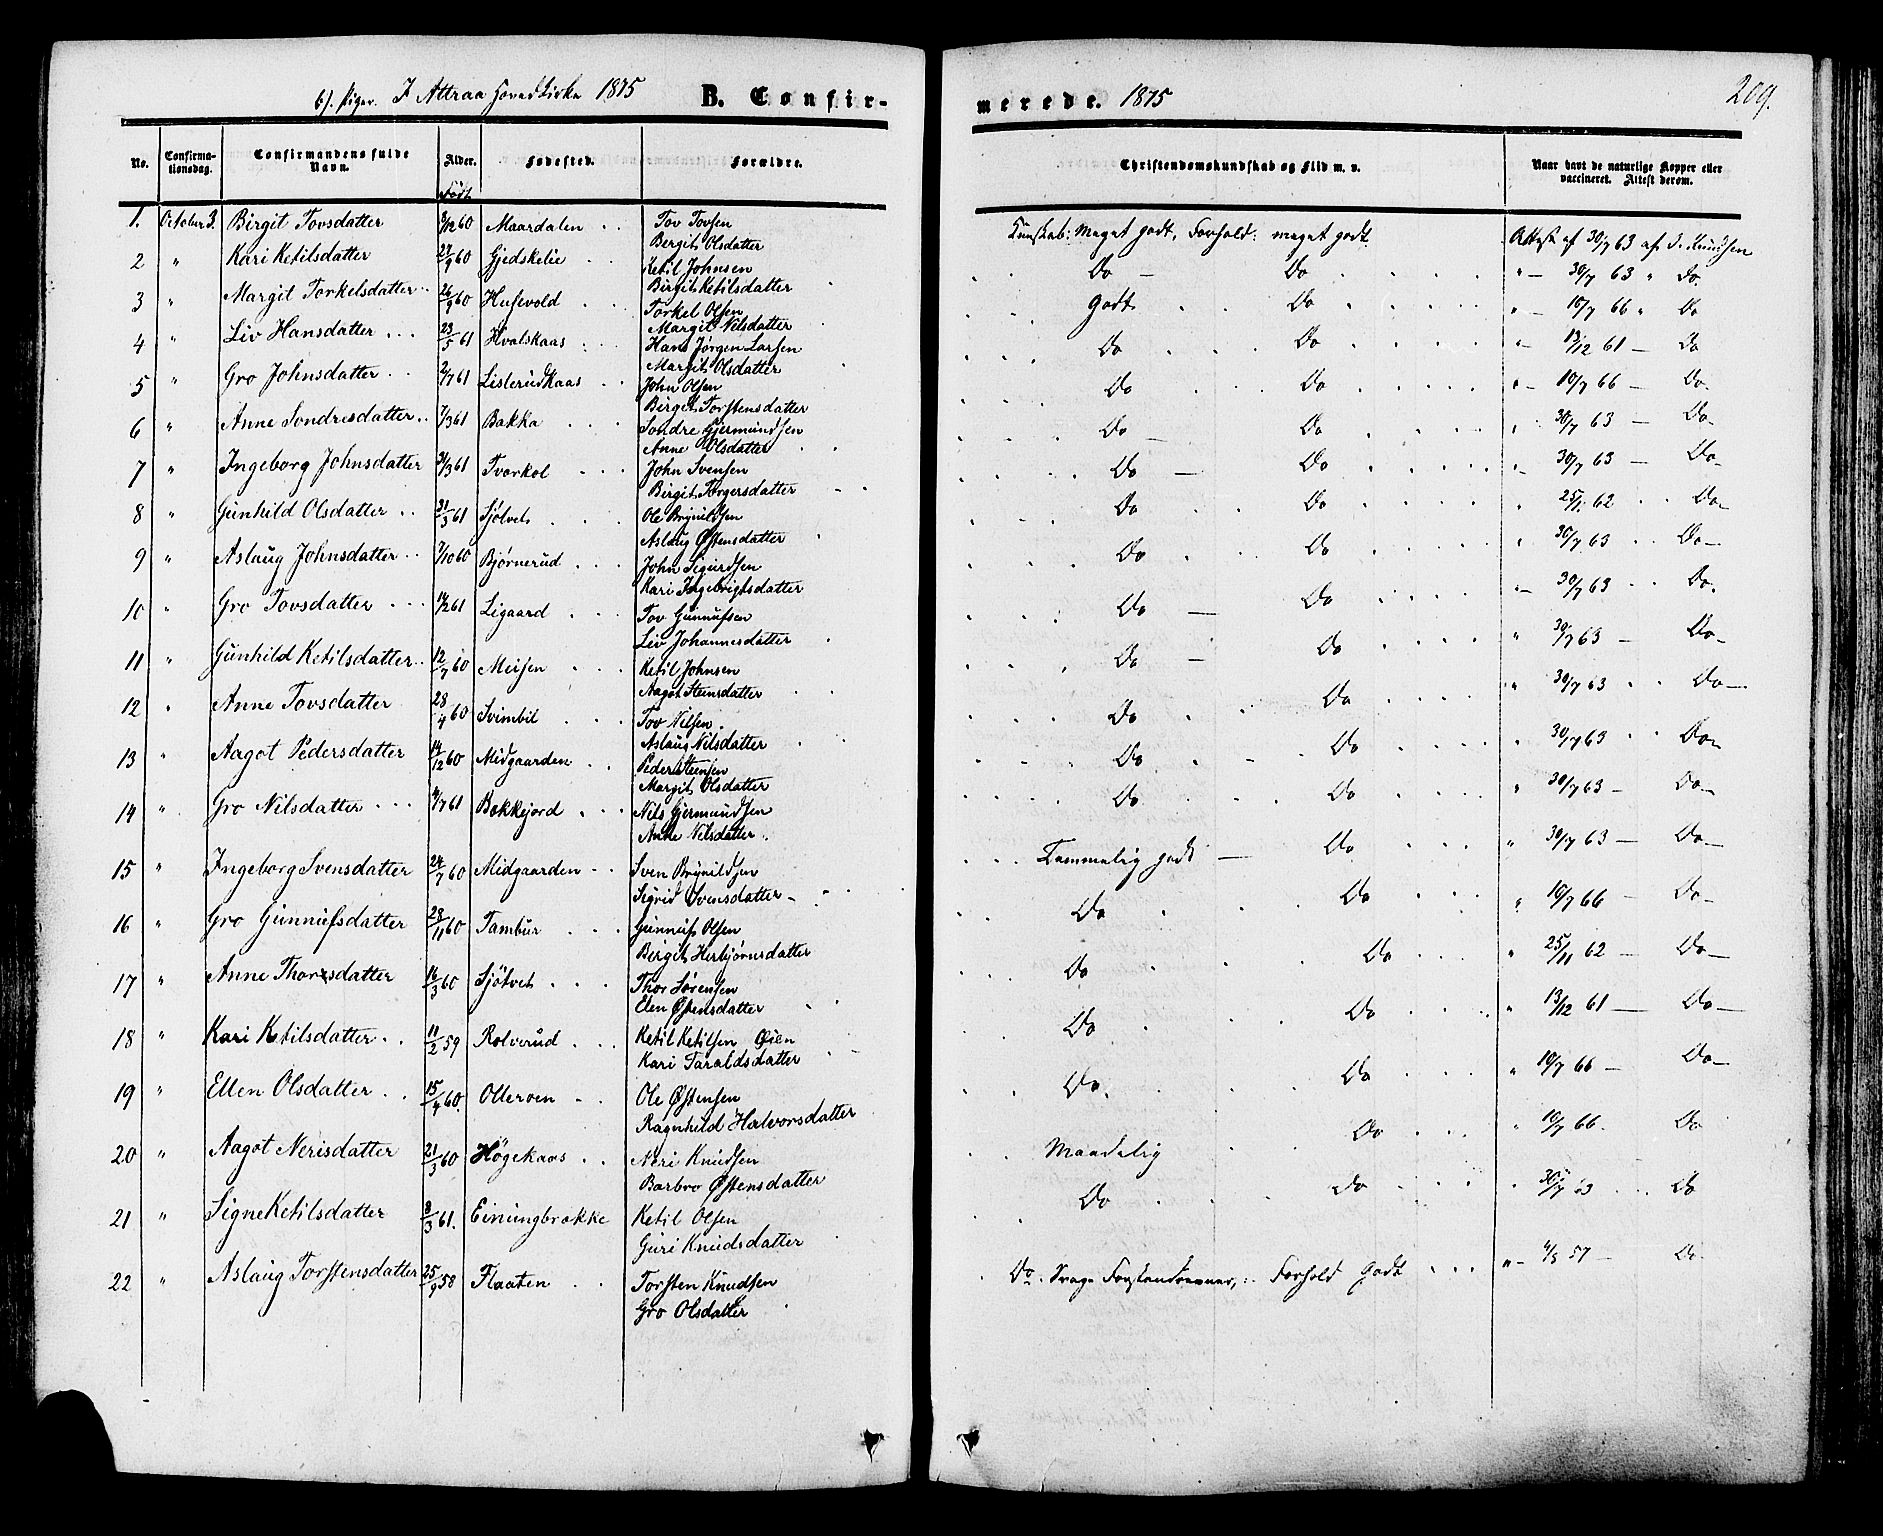 b). Piger. I Attraa Hovedkirke 1875 B. Confir-
merede. 1875
209.
No. Confirmationsdag. Confirmandens fulde Navn. Alder. Fødested. Forældre. Christendomskundskab og Flid m. v. Naar havt de naturlige Kopper eller vaccineret. Attest derom.
Født
1. October 3. Birgit Tovsdatter 3/12 60 Maardalen Tov Tovsen Kunskab: Meget godt, Forhold: meget godt. Attest af 30/7 63 af S. Knudsen
Bergit Olsdatter
2 " Kari Ketilsdatter 27/9 60 Gjedskelie Ketil Johnsen Do Do " 30/7 63 " Do.
Birgit Ketilsdatter
3 " Margit Torkelsdatter 26/9 60 Husevold Torkel Olsen Godt Do " 10/7 66 " Do
Margit Nilsdatter
4 " Liv Hansdatter 23/5 61 Hvalskaas Hans Jørgen Larsen Do Do " 13/12 61 Do
Margit Olsdatter
5 " Gro Johnsdatter 2/7 61 Listerudkaas John Olsen Do Do " 10/7 66 Do
Birgit Torstensdatter
6 " Anne Sondresdatter 7/3 61 Bakka Sondre Gjermundsen Do Do " 30/7 63 Do
Anne Olsdatter
7 " Ingeborg Johnsdatter 31/3 61 Tvorkol John Svensen Do Do " 30/7 63 Do
Birgit Torgersdatter
8 " Gunhild Olsdatter 31/3 61 Sjötvet Ole Brynildsen Do Do " 25/11 62 Do
Aslaug Østensdatter
9 " Aslaug Johnsdatter 7/10 60 Bjørnerud John Sigurdsen Do Do " 30/7 63 Do
Kari Ingebrigtsdatter
10 " Gro Tovsdatter 14/2 61 Ligaard Tov Gunnufsen Do Do " 30/7 63 Do.
Liv Johannesdatter
11 " Gunhild Ketilsdatter 12/7 60 Meisen Ketil Johnsen Do Do " 30/7 63 Do
Aagot Steinsdatter
12 " Anne Tovsdatter 28/4 60 Svimbil Tov Nilsen Do Do " 30/7 63 Do
Aslaug Nilsdatter
13 " Aagot Pedersdatter 14/12 60 Midgaarden Peder Steensen Do Do " 30/7 63 Do
Margit Olsdatter
14 " Gro Nilsdatter 4/7 61 Bakkejord Nils Gjermundsen Do Do " 30/7 63 Do
Anne Nilsdatter
15 " Ingeborg Svensdatter 24/7 60 Midgaarden Sven Brynildsen Temmelig godt Do " 30/7 63 Do
Sigrid Svensdatter
16 " Gro Gunnufsdatter 28/11 60 Tambur Gunnuf Olsen Do Do " 10/7 66 Do
Birgit Herbjørnsdatter
17 " Anne Thorsdatter 16/3 60 Sjötvet Thor Sørensen Do Do " 25/11 62 Do
Elen Østensdatter
18 " Kari Ketilsdatter 11/2 59 Rolverud Ketil Ketilsen Øien Do Do " 13/12 61 Do
Kari Taraldsdatter
19 " Ellen Olsdatter 15/4 60. Olleroen Ole Østensen Do. Do " 10/7 66 Do
Ragnhild Halvorsdatter
20 " Aagot Nerisdatter 21/3 60 Högekaas Neri Knudsen Maadelig Do " 10/7 66. Do
Barbro Østensdatter
21 " Signe Ketilsdatter 8/3 61. Einungbrække Ketil Olsen Do Do " 30/7 63 Do
Guri Knudsdatter
22 " Aslaug Torstensdatter 25/9 58 Flaaten Torsten Knudsen Do. Svage Forstandsevner, Forhold Godt " 57 Do
Gro Olsdatter